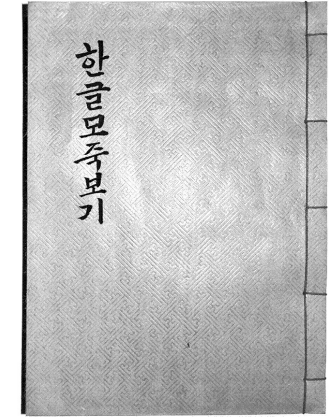 한글모죽보기